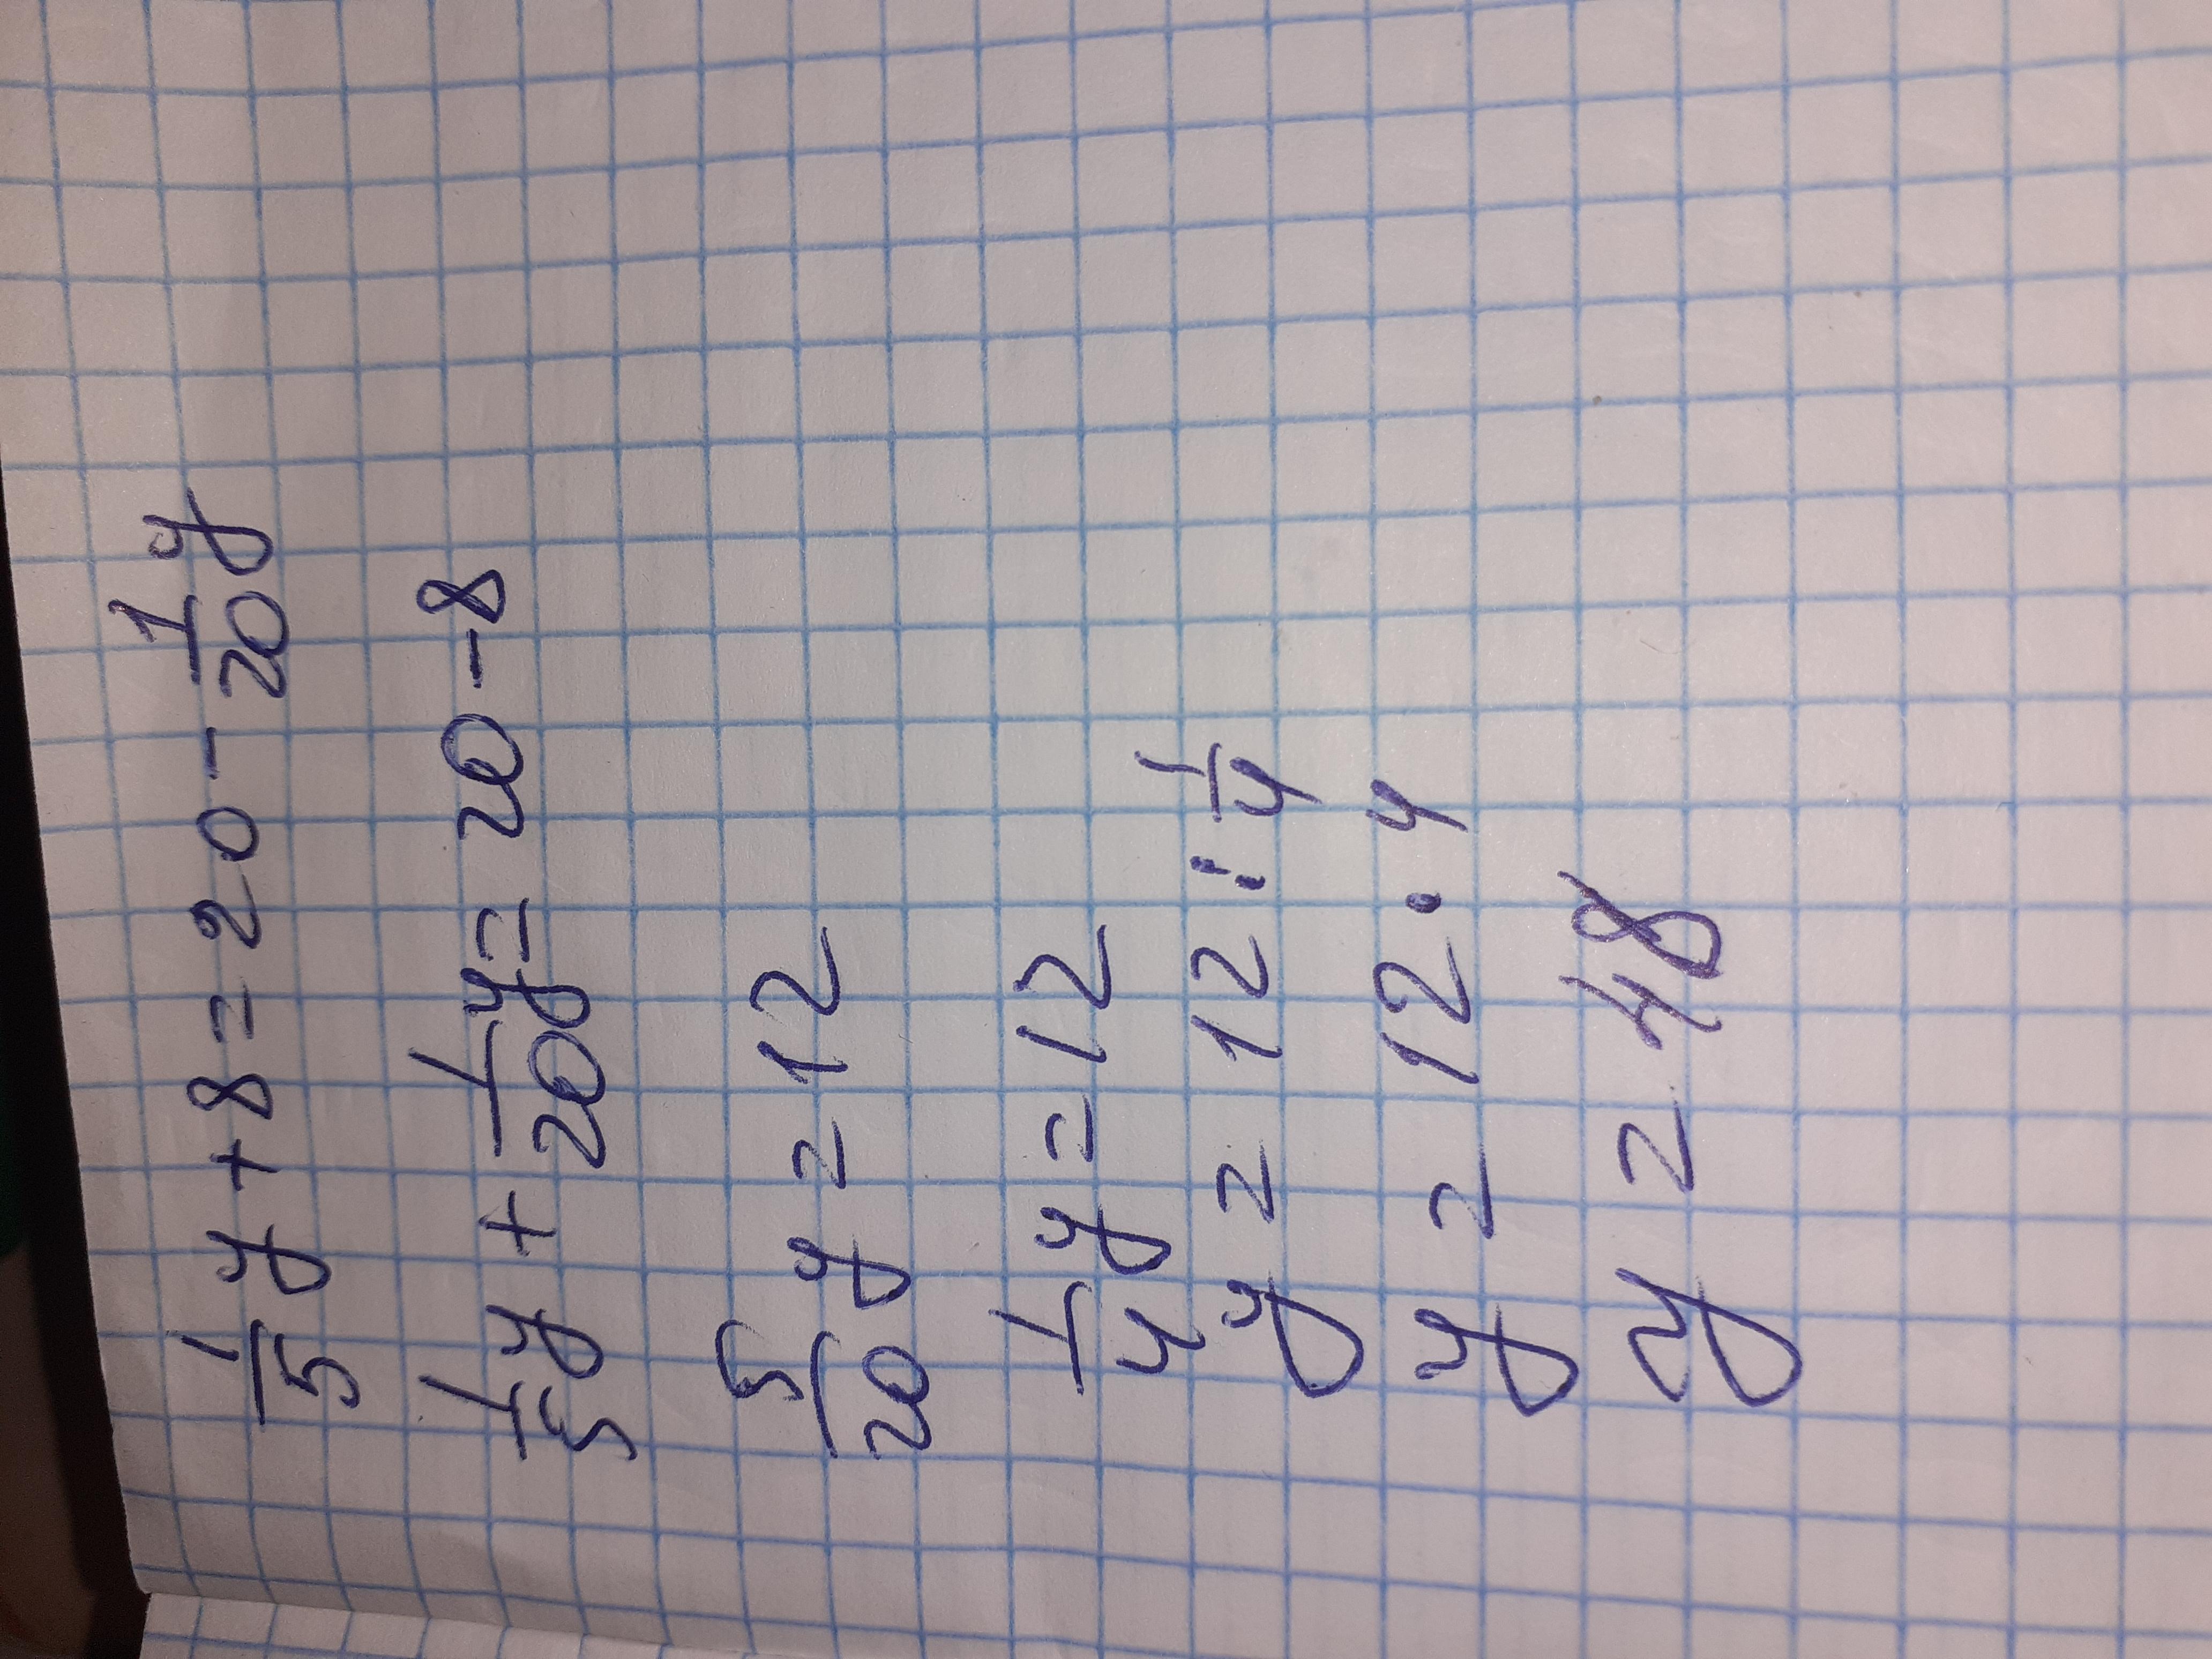 1/5 y + 8 = 20 - 1/20 y
1/5 y + 1/20 y = 20 - 8
5/20 y = 12
1/4 y = 12
y = 12 : 1/4
y = 12 · 4
y = 48